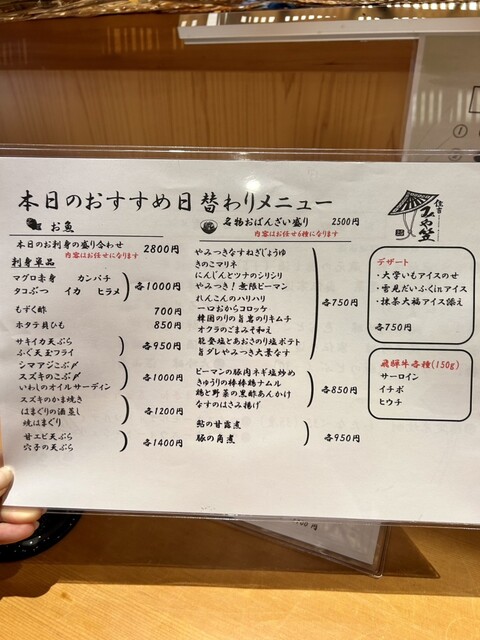 本日のおすすめ日替わりメニュー
お魚
本日のお刺身の盛り合わせ 2800円
内容はお任せになります
刺身単品
マグロ赤身 カンパチ
タコぶつ イカ ヒラメ 各1000円
もずく酢 700円
ホタテ貝ひも 850円
サキイカ天ぷら
ふぐ天玉フライ
各950円
シマアジこぶ〆
スズキのこぶ〆
いわしのオイルサーデイン
各1000円
スズキのかま焼き
はまぐりの酒蒸し
焼はまぐり
各1200円
甘エビ天ぷら
穴子の天ぷら
各1400円
名物おばんざい盛り 2500円
内容はお任せ6種になります
やみつきなすねぎじょうゆ
きのこマリネ
にんじんとツナのシリシリ
やみつき!無限ピーマン
れんこんのハリハリ
一口おからコロッケ
韓国のりの旨恵のりキムチ
オクラのごまみそ和え
能登塩とあおさのり塩ポテト
旨ダレやみつき大葉なす
各750円
ピーマンの豚肉ネギ塩炒め
きゅうりの棒棒鶏ナムル
鶏と野菜の黒酢あんかけ
なすのはさみ揚げ
各850円
鮎の甘露煮
豚の角煮
各950円
住吉
みや笠
デザート
・大学いもアイスのせ
・雪見だいふくinアイス
・抹茶大福アイス添え
各750円
飛騨牛各種(150g)
サーロイン
イチボ
ヒウチ